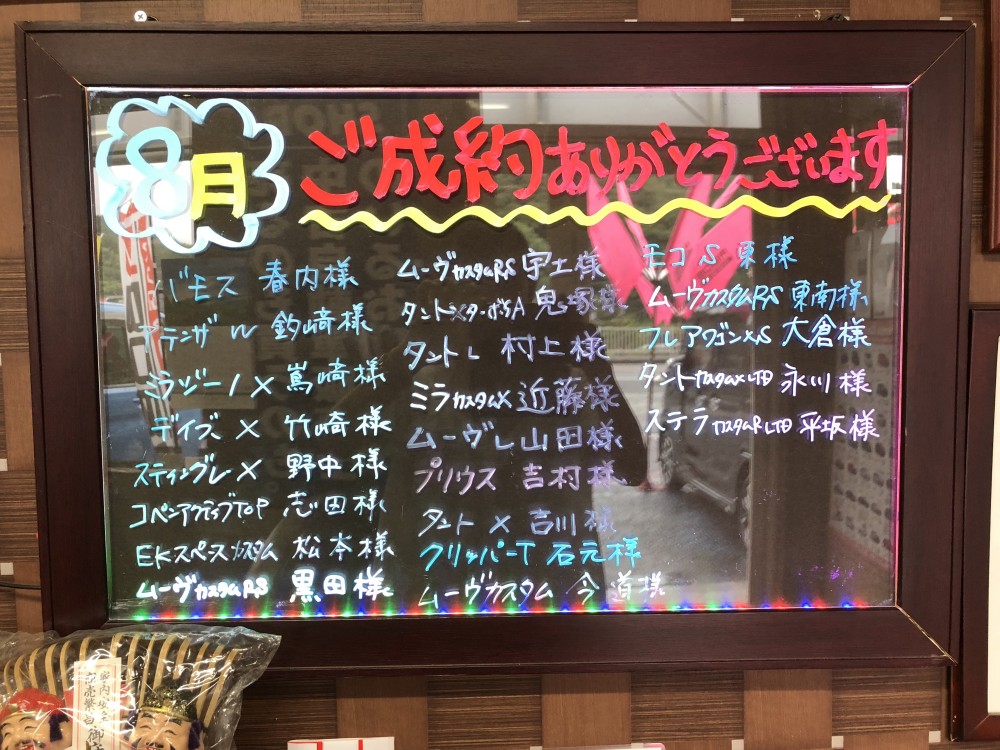 8月 ご成約ありがとうございます
バモス 春内様
アテンザW 釣崎様
ミラジーノX 嶌崎様
デイズX 竹崎様
スティングレX 野中様
コペンアクティブTOP 志田様
EKスペースカスタム 松本様
ムーヴカスタムRS 黒田様
ムーヴカスタムRS 宇土様
タントXターボSA 鬼塚様
タントL 村上様
ミラカスタムX 近藤様
ムーヴL 山田様
プリウス 吉村様
タントX 吉川様
クリッパーT 石元様
ムーヴカスタム 今道様
モコS 東様
ムーヴカスタムRS 東南様
フレアワゴンXS 大倉様
タントカスタムX LTD 永川様
ステラカスタムR LTD 平坂様